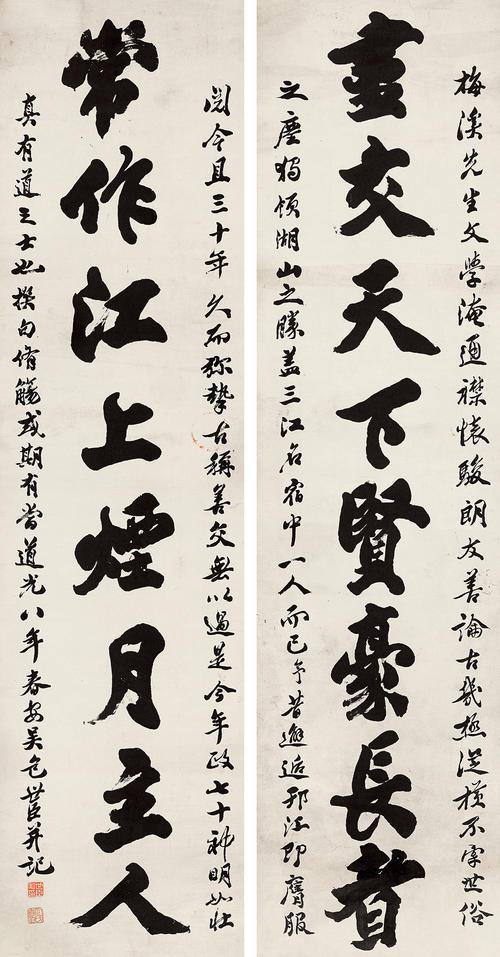 梅溪先生文學淹通襟懷駿朗友善論古幾極從橫不牽世俗
盡交天下賢豪長者
之塵獨領湖山之勝蓋三江名宿中一人而已予昔邂逅邗江即膺服
閱今且三十年久而彌摯古稱善交無以過是今年政七十神明如壯
常作江上煙月主人
真有道之士也撰句侑觴或期有當道光八年春安吳包世臣并記